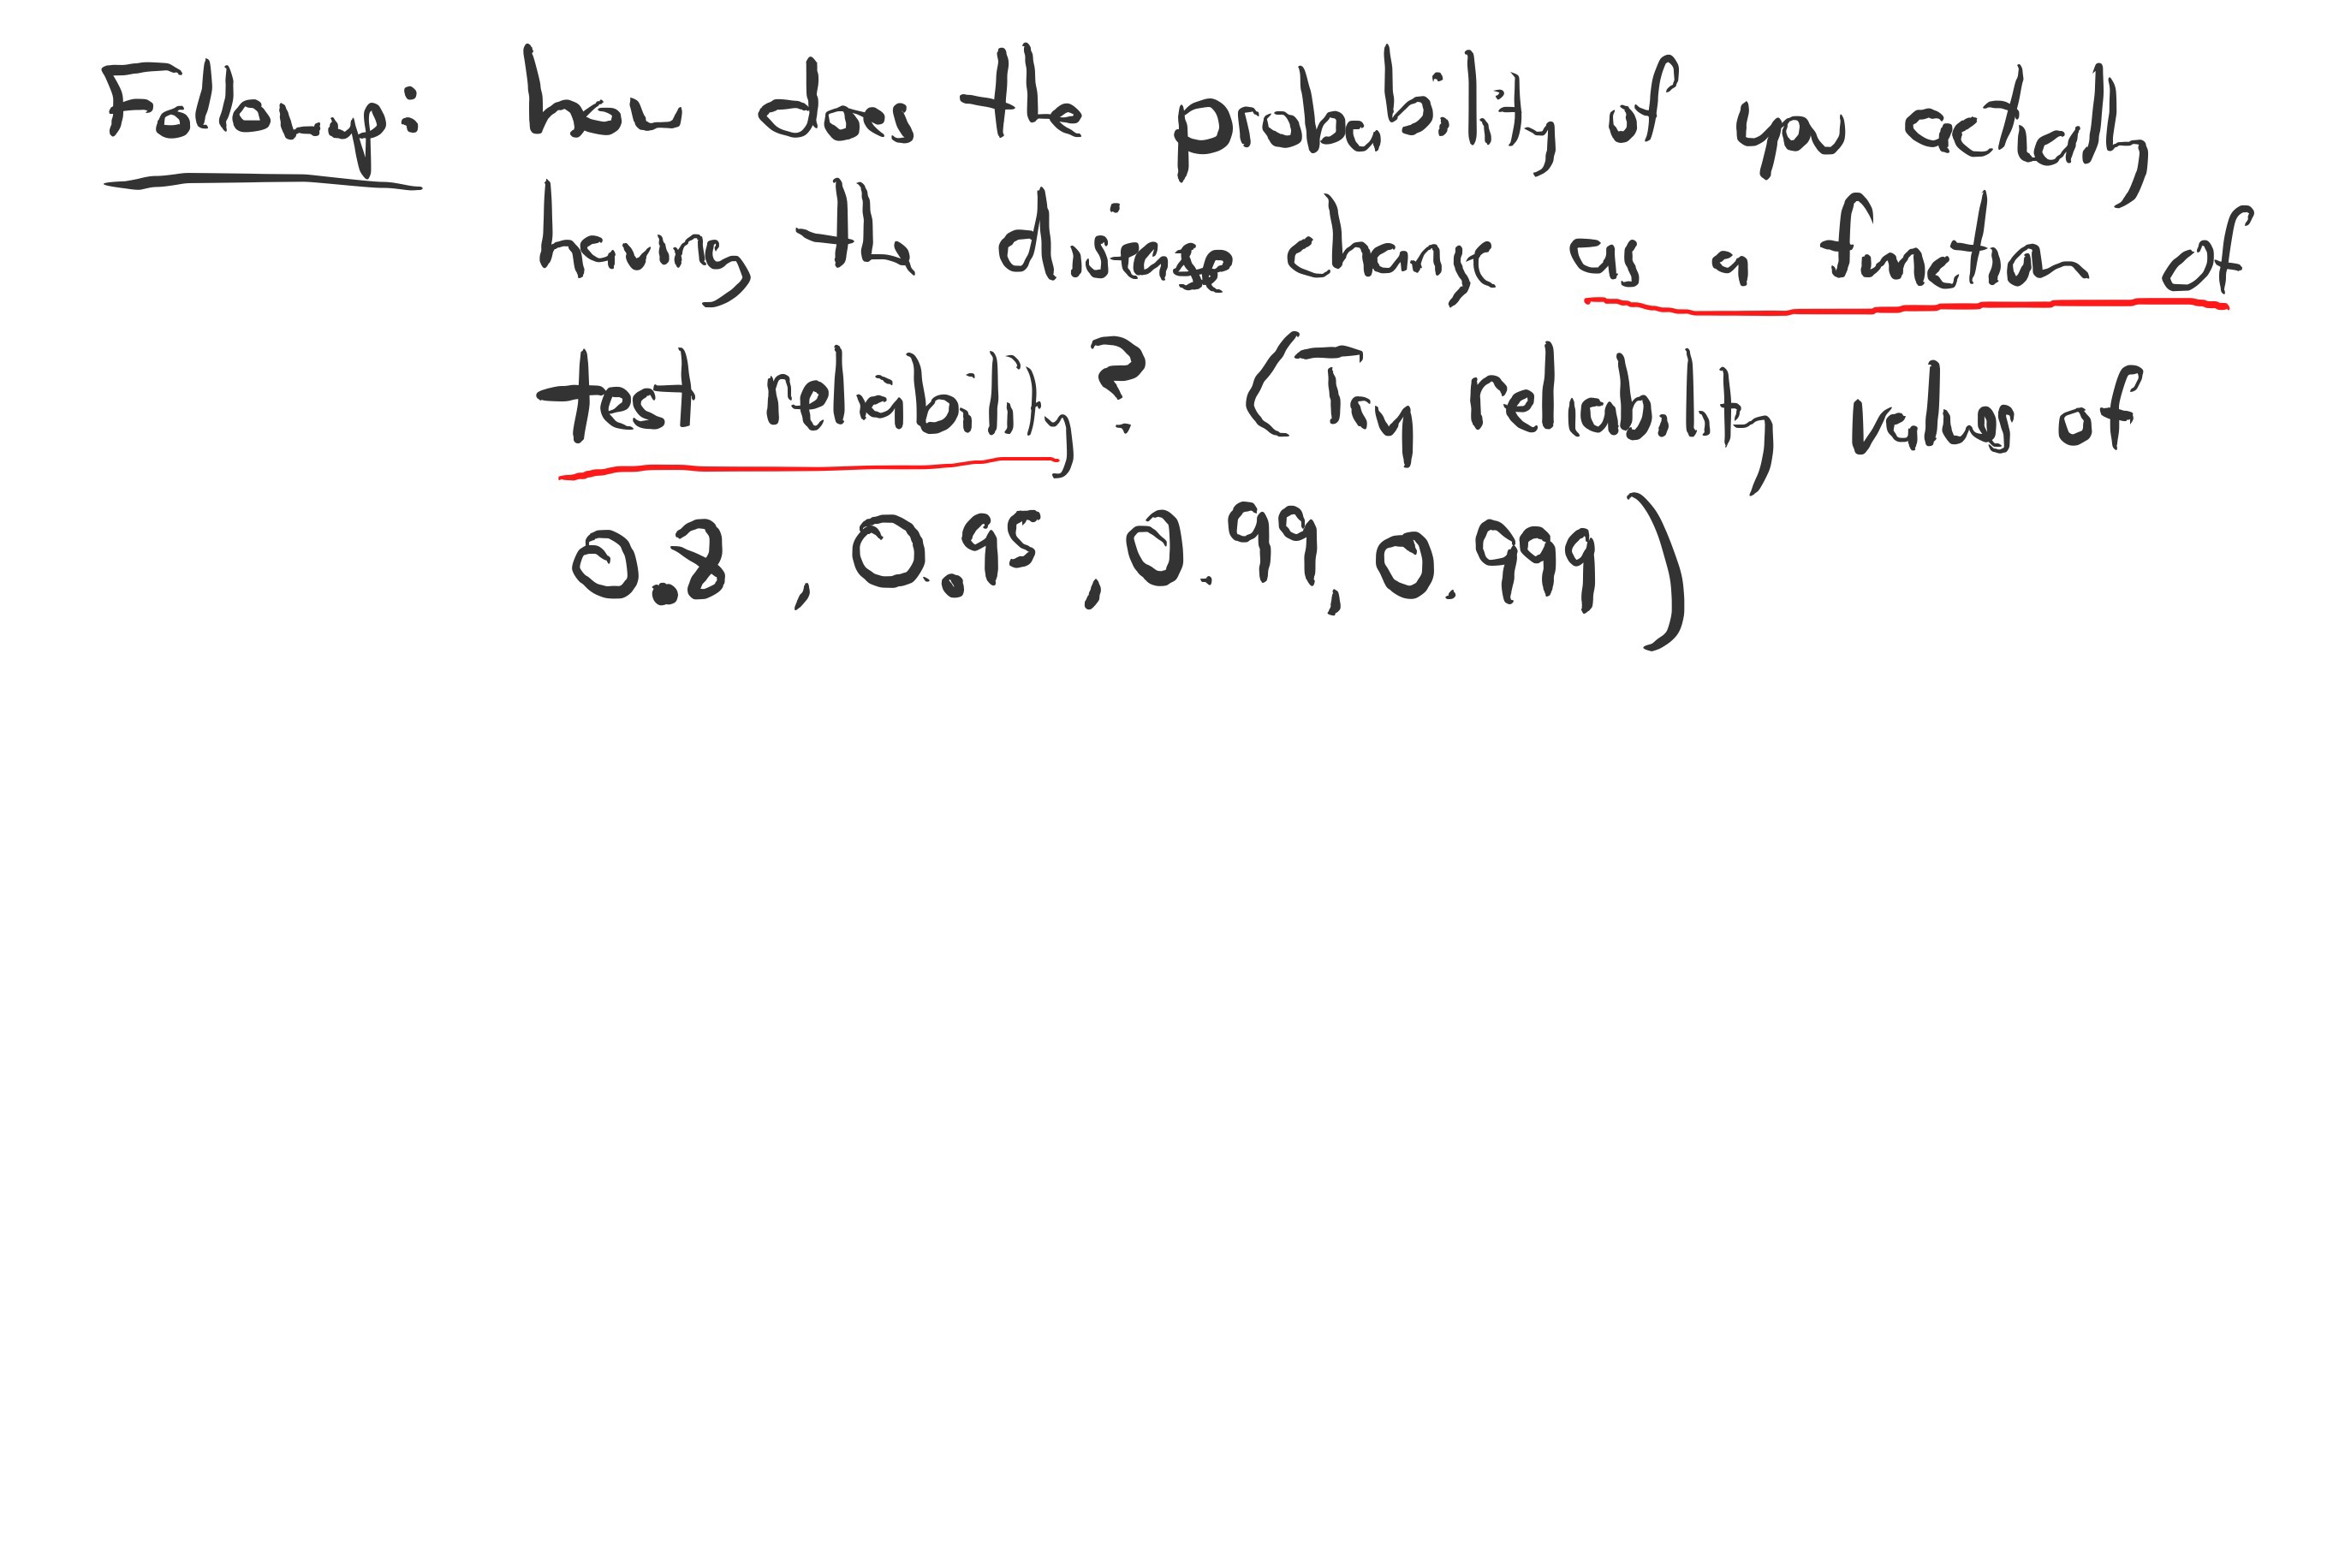 Follow-up: how does the probability of you actually
having the disease change as a function of
test reliability? (Try reliability values of
0.8, 0.95, 0.99, 0.999)